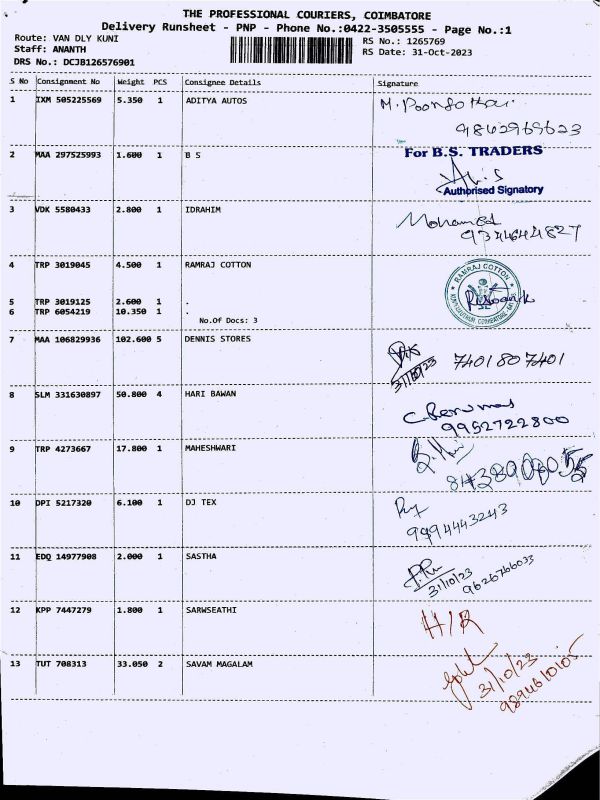 THE PROFESSIONAL COURIERS, COIMBATORE
Delivery Runsheet - PNP - Phone No.:0422-3505555 - Page No.:1
Route: VAN DLY KUNI
Staff: ANANTH
DRS No.: DCJB126576901
RS No.: 1265769
RS Date: 31-Oct-2023
S No Consignment No Weight PCS Consignee Details Signature
1 IXM 505225569 5.350 1 ADITYA AUTOS
9842969623
2 MAA 297525993 1.600 1 B S
For B.S. TRADERS
Authorised Signatory
3 VDK 5580433 2.800 1 IDRAHIM Mohamed
4 TRP 3019045 4.500 1 RAMRAJ COTTON
RAMRAJ COTTON
5 TRP 3019125 2.600 1 .
6 TRP 6054219 10.350 1 .
No.Of Docs: 3
7 MAA 106829936 102.600 5 DENNIS STORES
31/10/23 7401807401
8 SLM 331630897 50.800 4 HARI BAWAN
9952722800
9 TRP 4273667 17.800 1 MAHESHWARI
10 DPI 5217320 6.100 1 DJ TEX
9994443243
11 EDQ 14977908 2.000 1 SASTHA
31/10/23 9626766033
12 KPP 7447279 1.800 1 SARWSEATHI
H/R
13 TUT 708313 33.050 2 SAVAM MAGALAM
31/10/23
9894610105